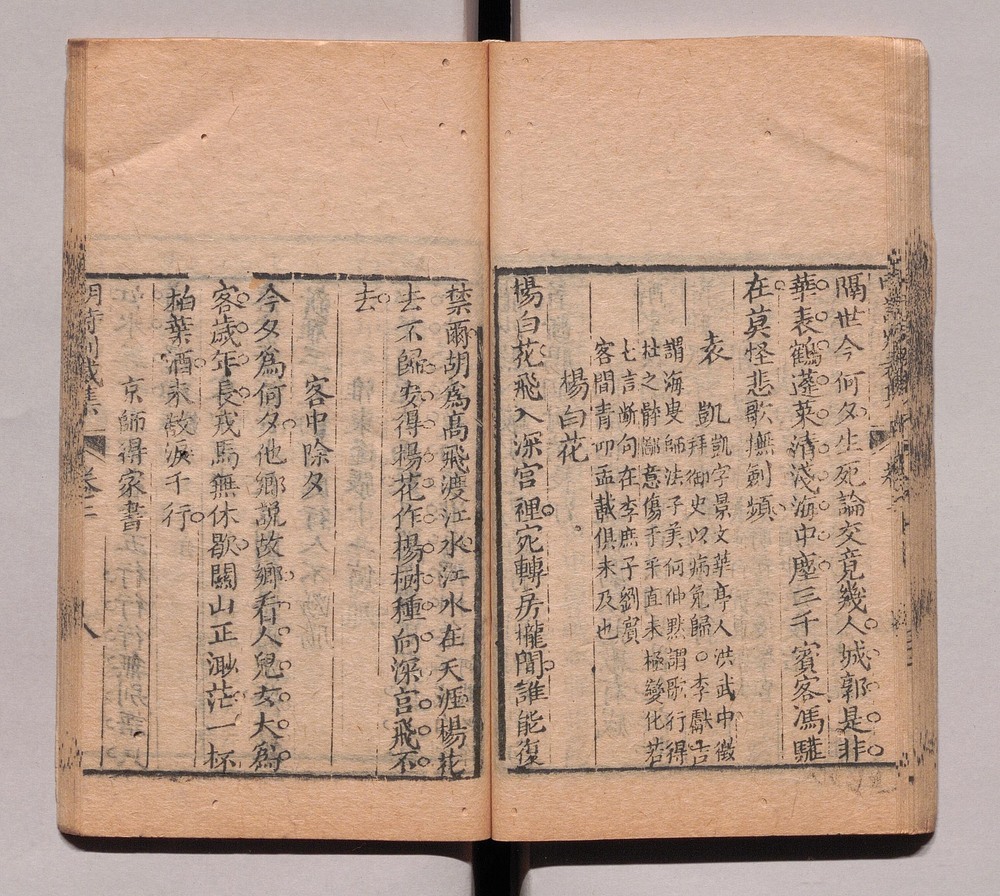 隔世今何夕生死論交竟幾人城郭是非
華表鶴蓬萊清淺海中塵三千賓客馮驩
在莫怪悲歌撫劍頻
袁凱
凱字景文華亭人洪武中徵
拜御史以病免歸○李獻吉
謂海叟師法子美何仲默謂歌行得
杜之髓鄙意傷于平直未極變化若
七言斷句在李庶子劉賓
客間青叩孟載俱未及也
楊白花
楊白花飛入深宮裡宛轉房櫳間誰能復
禁爾胡爲高飛渡江水江水在天涯楊花
去不歸安得楊花作楊樹種向深宮飛不
去
客中除夕
今夕爲何夕他鄉說故鄉看人兒女大爲
客歲年長戎馬無休歇關山正渺茫一杯
柏葉酒未敵淚千行
京師得家書
明詩別裁集 卷二 八